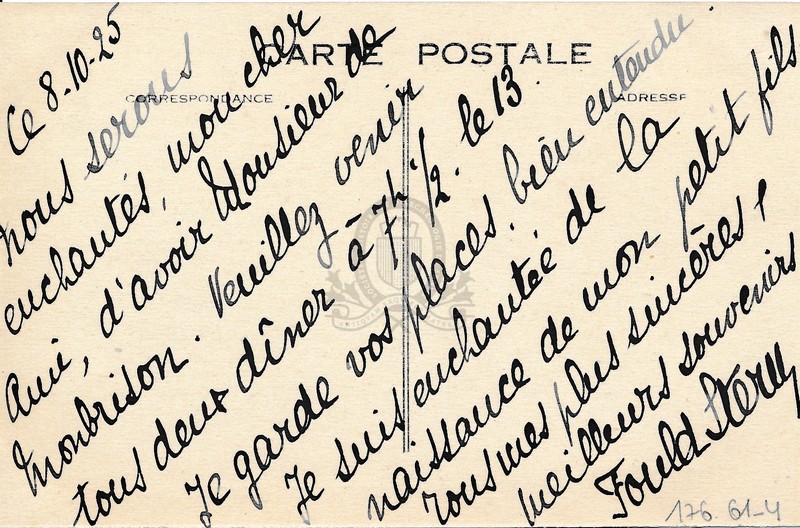 CARTE POSTALE
CORRESPONDANCE
ADRESSE
Ce 8-10-25
Nous serons
enchantés, mon cher
Ami, d'avoir Monsieur de
Monbrison. Veuillez venir
tous deux dîner à 7h 1/2. le 13.
Je garde vos places, bien entendu.
Je suis enchantée de la
naissance de mon petit fils
Tous mes plus sincères,
meilleurs souvenirs
Fould Stern
176.61-4